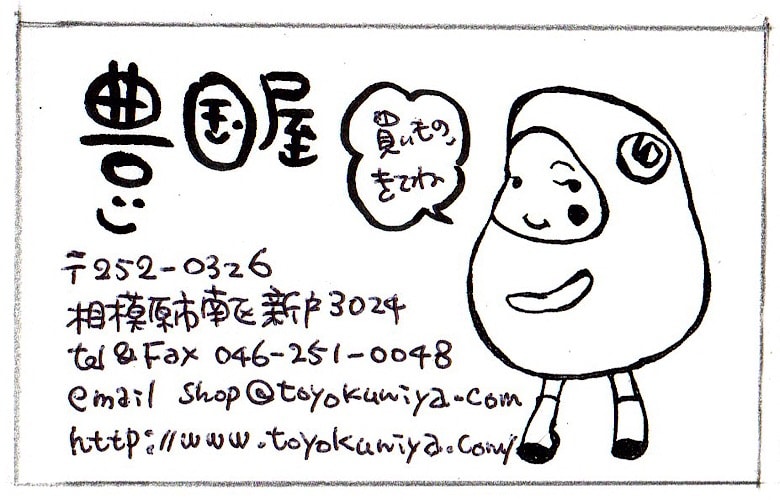 豊国屋
買いもの、
きてね
〒252-0326
相模原市南区新戸3024
tel & Fax 046-251-0048
email shop@toyokuniya.com
http://www.toyokuniya.com/